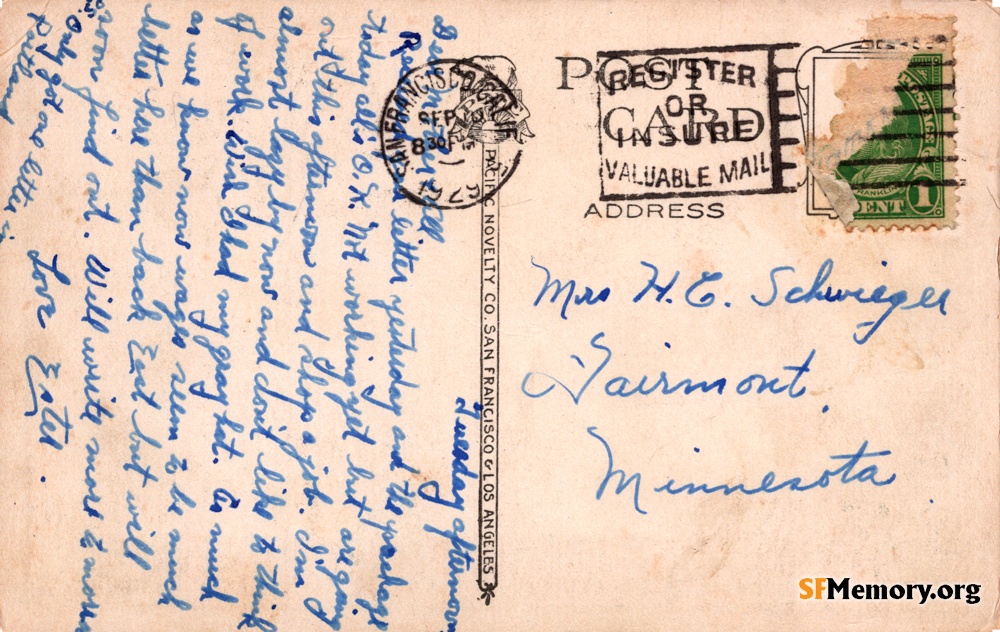 POST CARD
REGISTER
OR
INSURE
VALUABLE MAIL
SAN FRANCISCO CALIF
SEP
8 30 PM
POSTAGE
FRANKLIN
1
CENT
ADDRESS
Mrs H. E. Schwieger
Fairmont,
Minnesota.
PACIFIC NOVELTY CO. SAN FRANCISCO & LOS ANGELES
Tuesday afternoon
Dearest All
Rec'd letter yesterday and the package
today all is O.K. Not working yet but are going
out this afternoon and shop a job. I'm
almost lazy by now and don't like to think
of work. Wish I had my gray hat. As much
as we know now wages seem to be much
better here than back East but will
soon find out. Will write more to morrow
Love Estel.
P.S. Only got one letter in
Portland
SFMemory.org